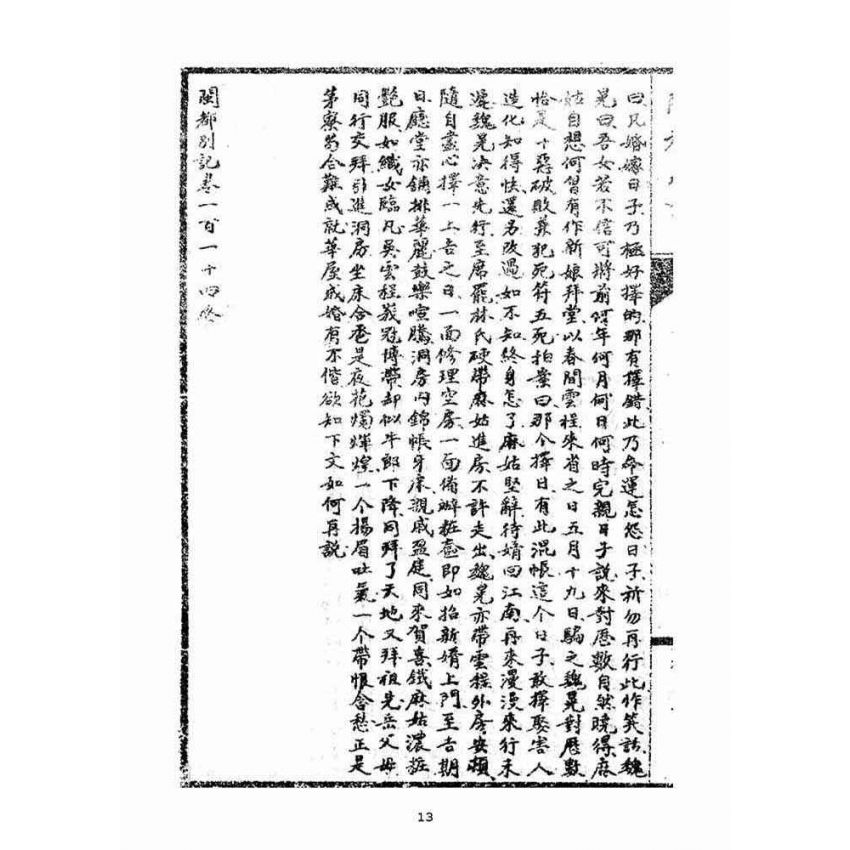 曰凡婚嫁日子乃極好擇的那有擇錯此乃命運怎怨日子祈勿再行此作笑話魏
晃曰吾女若不信可將前何年何月何日何時完親日子説來對曆數自然曉得麻
姑自想何曾有作新娘拜堂以春間雲程來省之日五月十九日騙之魏晃對曆數
恰是十惡破敗兼犯死符五死拍案曰那个擇日有此混帳這个日子敢擇娶害人
造化知得快還另改過如不知終身怎了麻姑堅辭待婿回江南再來漫漫來行未
遲魏晃决意先行至席罷林氏硬帶麻姑進房不許走出魏晃亦帶雲程外房安頓
隨自盡心擇一上吉之日一面修理空房一面備辦粧奩即如招新婿上門至吉期
日廳堂亦鋪排華麗鼓樂喧騰洞房内錦帳牙床親戚盈庭同來賀喜鐵麻姑濃粧
艷服如織女臨凡吳雲程峩冠博帶却似牛郎下降同拜了天地又拜祖先岳父母
同行交拜引進洞房坐床合卺是夜花燭煇煌一个揚眉吐氣一个帶恨含愁正是
茅寮苟合難成就華屋成婚有不偕欲知下文如何再説
閩都別記卷一百一十四終
13